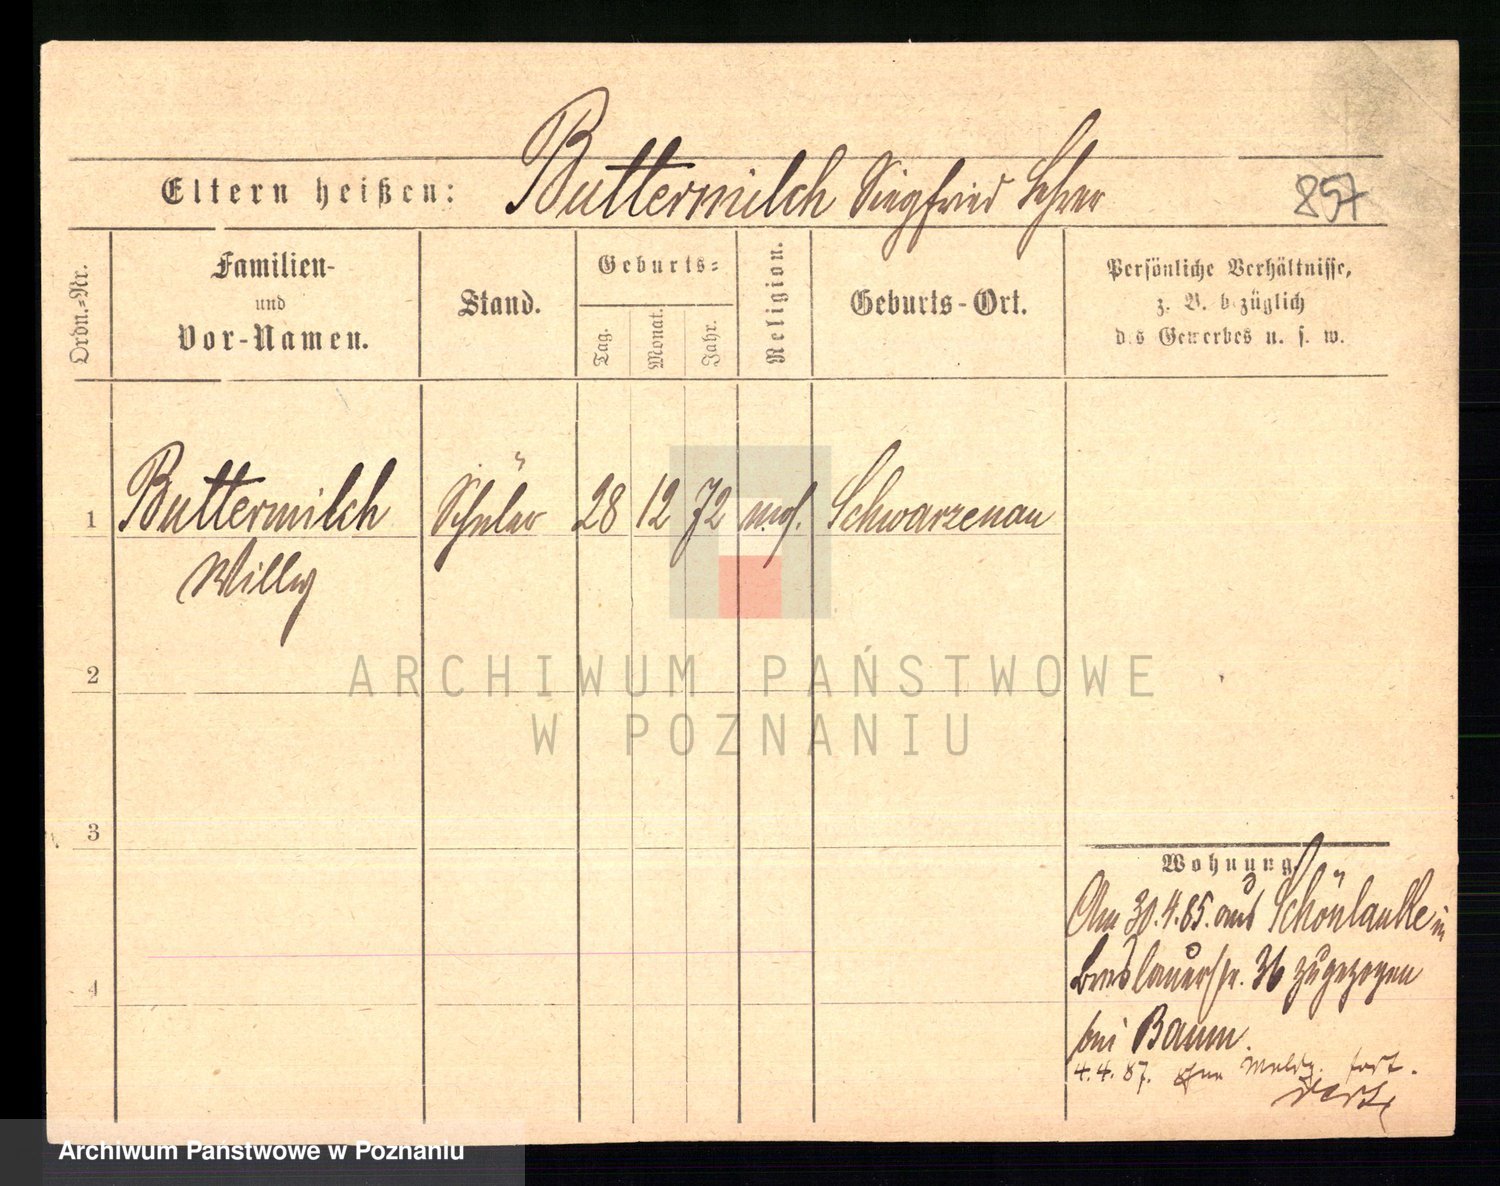 Eltern heißen: Buttermilch Siegfried Lehrer
857
Ordn.-Nr.
Familien-
und
Vor-Namen.
Stand.
Geburts-
Tag.
Monat.
Jahr.
Religion.
Geburts-Ort.
Persönliche Verhältnisse,
z. B. bezüglich
des Gewerbes u. s. w.
1 Buttermilch Schüler 28 12 72 mos. Schwarzenau
Willy
2
3
4
Wohnung.
Am 30.4.85. aus Schönlanke in
Breslauerstr. 36 zugezogen
bei Baum.
4.4.87. ohne Meldg. fort.
ARCHIWUM PAŃSTWOWE
W POZNANIU
Archiwum Państwowe w Poznaniu